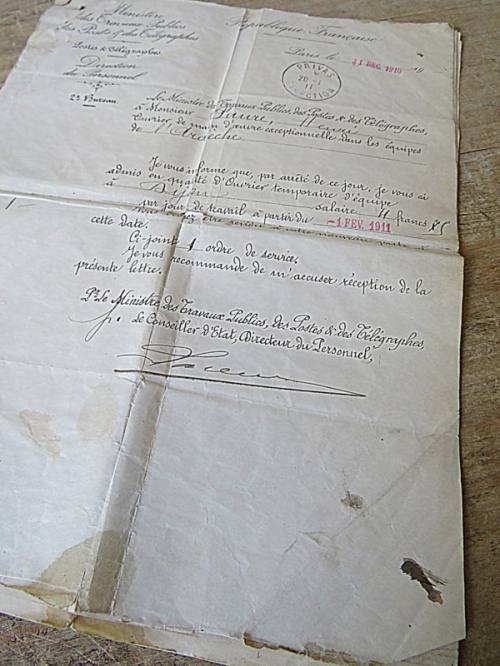 Ministère
des Travaux Publics
des Postes & des Télégraphes
Postes & Télégraphes
Direction
du Personnel
2e Bureau
République Française
Paris, le 31 DEC. 1910 19
PRIVAS
20 - 1
11
SECTION
Le Ministre des Travaux Publics, des Postes & des Télégraphes,
à Monsieur Faure,
Ouvrier de main d'œuvre exceptionnelle dans les équipes
de l'Ardèche
Je vous informe que, par arrêté de ce jour, je vous ai
admis en qualité d'Ouvrier temporaire d'équipe
à Dijon salaire 4 francs
par jour de travail à partir du -1 FEV. 1911
cette date.
Ci-joint 1 ordre de service.
Je vous recommande de m'accuser réception de la
présente lettre.
Pr. le Ministre des Travaux Publics, des Postes & des Télégraphes,
le Conseiller d'Etat, Directeur du Personnel,